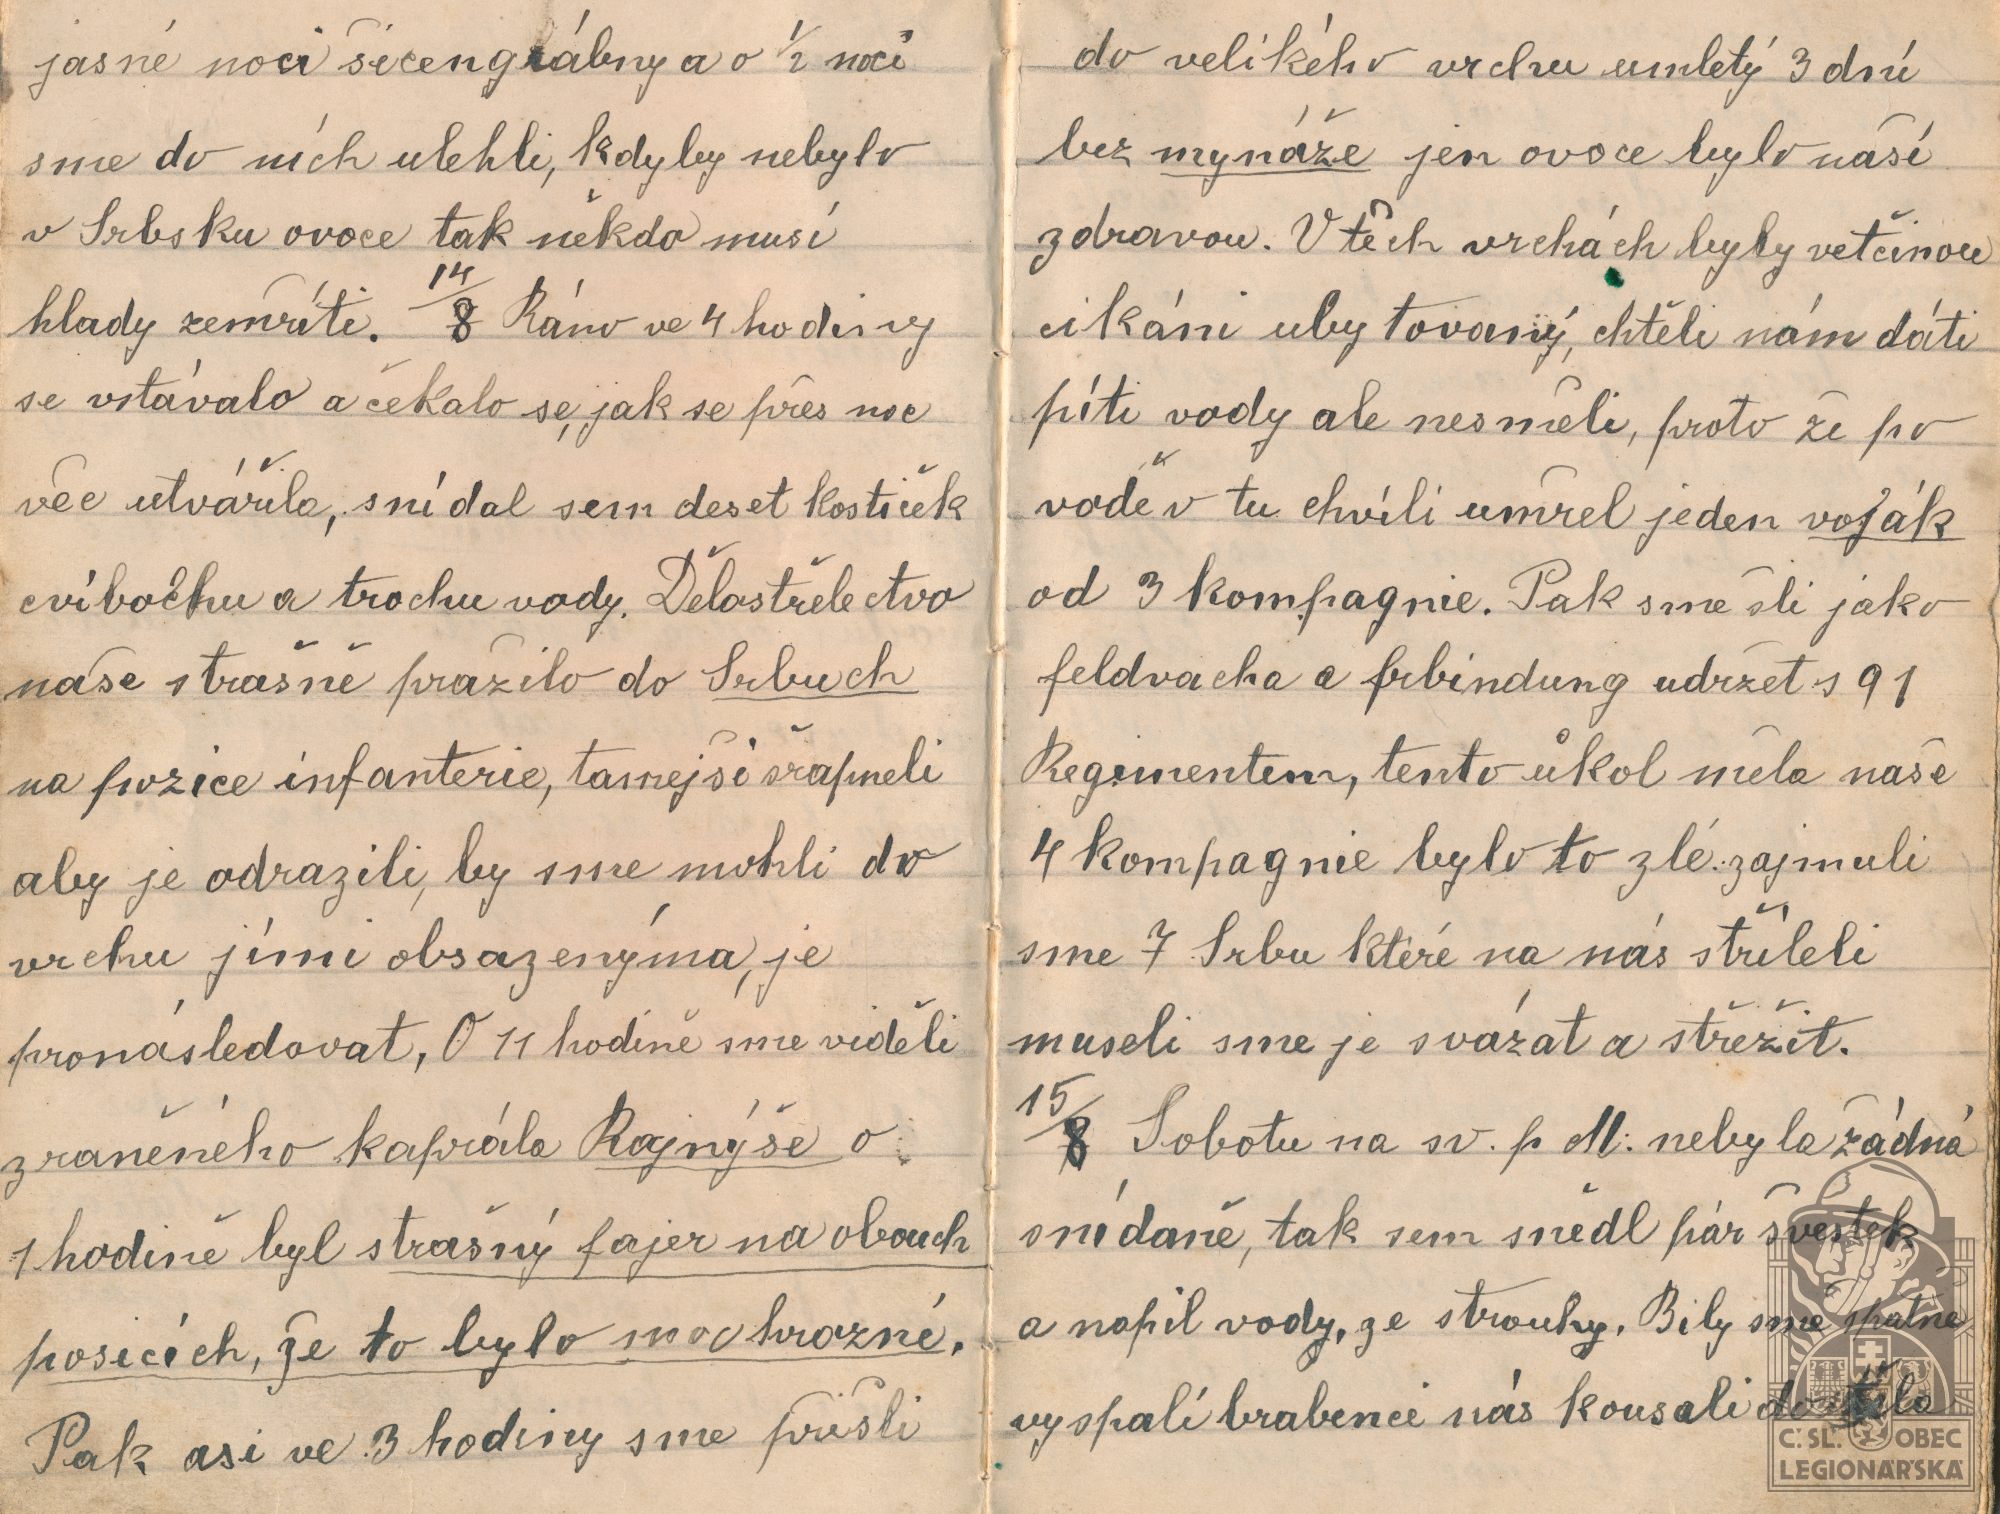 jasné noci šicengrábny a o 1/2 noci
sme do nich ulehli, kdyby nebylo
v Srbsku ovoce tak někdo musí
hlady zemříti. 14/8 Ráno ve 4 hodiny
se vstávalo a čekalo se, jak se přes noc
věc utvářila, snídal sem deset kostiček
cvibočku a trochu vody. Dělastřelectvo
naše strašně pražilo do Srbuch
na pozice infanterie, tamejší šrapneli
aby je odrazili, by sme mohli do
vrchu jími obsazenýma, je
pronásledovat, O 11 hodině sme viděli
zraněného kaprála Rajnýše o
1 hodině byl strašný fajer na obouch
posicích, že to bylo moc hrozné.
Pak asi ve 3 hodiny sme přišli
do velikého vrchu umletý 3 dní
bez mynáže jen ovoce bylo naší
zdravou. V těch vrchách byly vetčinou
cikáni ubytovaný, chtěli nám dáti
píti vody ale nesměli, proto že po
vodě v tu chvíli umřel jeden voják
od 3 kompagnie. Pak sme šli jako
feldvacha a frbindung udržet s 91
Regimentem, tento úkol měla naše
4 kompagnie bylo to zlé: zajmuli
sme 7 Srbu které na nás stříleli
museli sme je svázat a střežit.
15/8 Sobotu na sv. p M: nebyla žádná
snídaně, tak sem snědl pár švestek
a napil vody, ze strouhy. Bily sme špatně
vyspalí brabenci nás kousali do těla
Č. SL. OBEC
LEGIONÁŘSKÁ